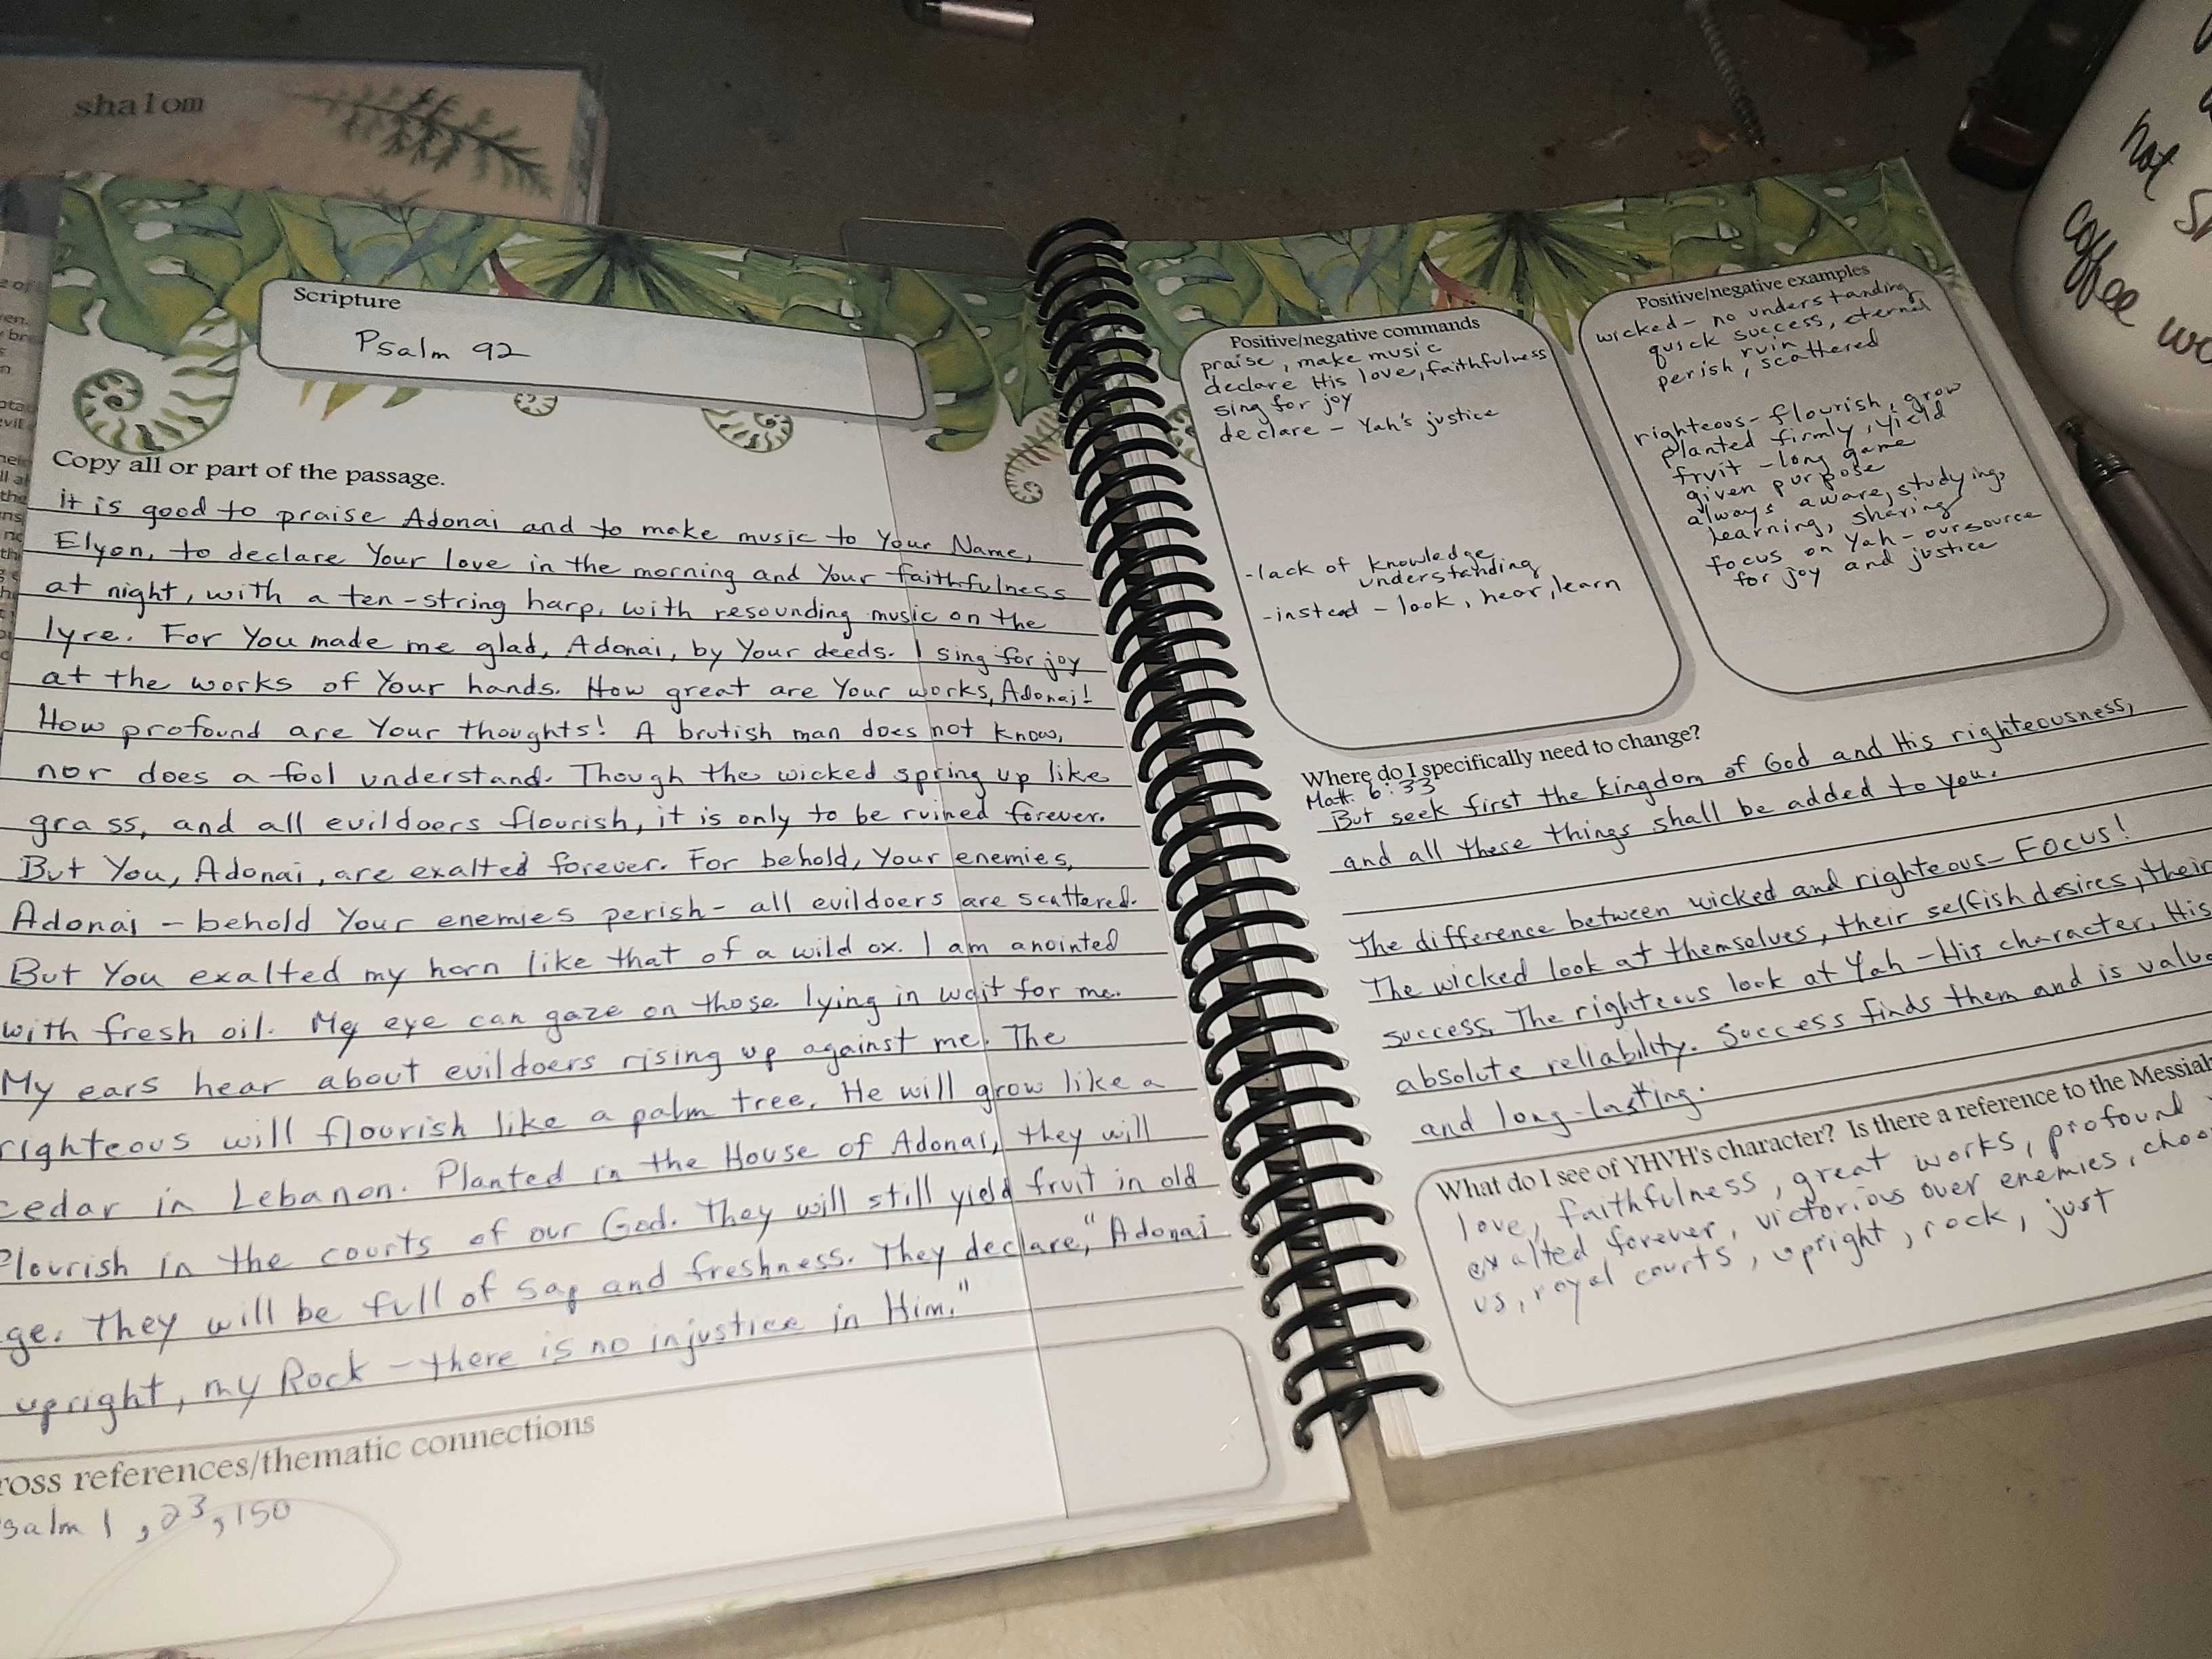 shalom
Scripture
Psalm 92
Copy all or part of the passage.
it is good to praise Adonai and to make music to Your Name,
Elyon, to declare Your love in the morning and Your faithfulness
at night, with a ten-string harp, with resounding music on the
lyre. For You made me glad, Adonai, by Your deeds. I sing for joy
at the works of Your hands. How great are Your works, Adonai!
How profound are Your thoughts! A brutish man does not know,
nor does a fool understand. Though the wicked spring up like
grass, and all evildoers flourish, it is only to be ruined forever.
But You, Adonai, are exalted forever. For behold, Your enemies,
Adonai - behold Your enemies perish - all evildoers are scattered.
But You exalted my horn like that of a wild ox. I am anointed
with fresh oil. My eye can gaze on those lying in wait for me.
My ears hear about evildoers rising up against me. The
righteous will flourish like a palm tree. He will grow like a
cedar in Lebanon. Planted in the House of Adonai, they will
flourish in the courts of our God. They will still yield fruit in old
ge. They will be full of sap and freshness. They declare, "Adonai
upright, my Rock - there is no injustice in Him."
ross references/thematic connections
salm 1, 23, 150
Positive/negative commands
praise, make music
declare His love, faithfulness
sing for joy
declare - Yah's justice
-lack of knowledge
understanding
-instead - look, hear, learn
Positive/negative examples
wicked - no understanding
quick success, eternal
ruin
perish, scattered
righteous - flourish, grow
planted firmly, yield
fruit - long game
given purpose
always aware, studying,
learning, sharing
focus on Yah - our source
for joy and justice
Where do I specifically need to change?
Matt. 6:33
But seek first the kingdom of God and His righteousness,
and all these things shall be added to you.
The difference between wicked and righteous - FOCUS!
The wicked look at themselves, their selfish desires, their
success. The righteous look at Yah - His character, His
absolute reliability. Success finds them and is value
and long-lasting.
What do I see of YHVH's character? Is there a reference to the Messiah
love, faithfulness, great works, profound
exalted forever, victorious over enemies, choo
us, royal courts, upright, rock, just
not
coffee